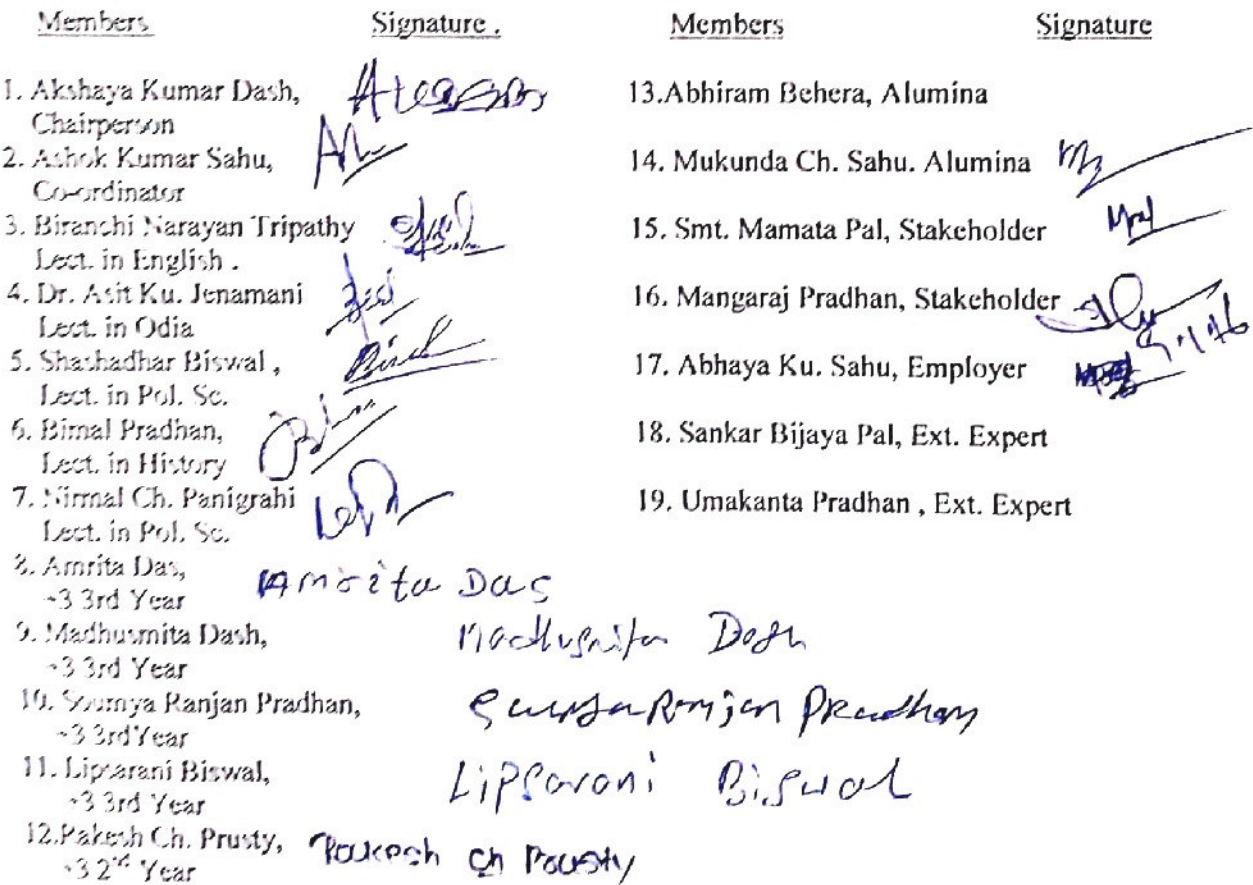 Members Signature . Members Signature
1. Akshaya Kumar Dash,
Chairperson
2. Ashok Kumar Sahu,
Co-ordinator
3. Biranchi Narayan Tripathy
Lect. in English .
4. Dr. Asit Ku. Jenamani
Lect. in Odia
5. Shashadhar Biswal ,
Lect. in Pol. Sc.
6. Bimal Pradhan,
Lect. in History
7. Nirmal Ch. Panigrahi
Lect. in Pol. Sc.
8. Amrita Das, Amrita Das
+3 3rd Year
9. Madhusmita Dash, Madhusmita Dash
+3 3rd Year
10. Soumya Ranjan Pradhan, Ranjan Pradhan
+3 3rdYear
11. Lipsarani Biswal, Lipsarani Biswal
+3 3rd Year
12.Rakesh Ch. Prusty, Rakesh ch Prusty
+3 2nd Year
13.Abhiram Behera, Alumina
14. Mukunda Ch. Sahu. Alumina
15. Smt. Mamata Pal, Stakeholder
16. Mangaraj Pradhan, Stakeholder
17. Abhaya Ku. Sahu, Employer
18. Sankar Bijaya Pal, Ext. Expert
19. Umakanta Pradhan , Ext. Expert